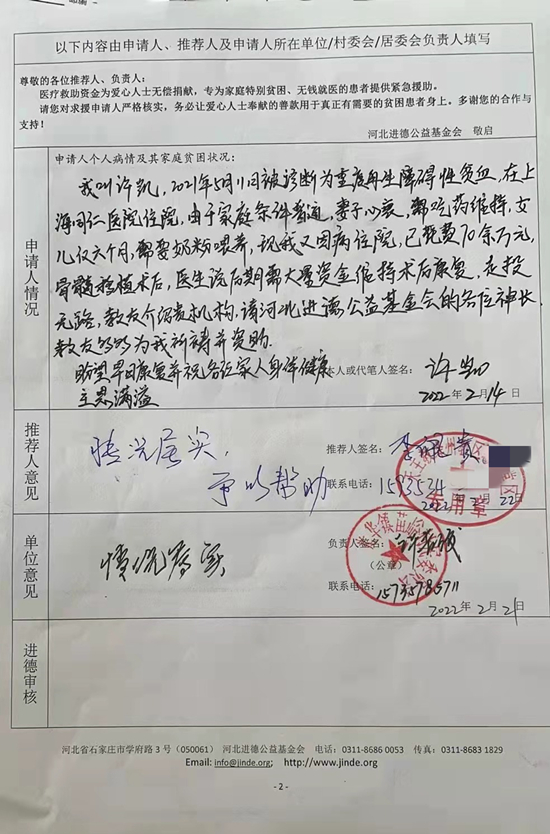 以下内容由申请人、推荐人及申请人所在单位/村委会/居委会负责人填写
尊敬的各位推荐人、负责人：
医疗救助资金为爱心人士无偿捐献，专为家庭特别贫困、无钱就医的患者提供紧急援助。
请您对求援申请人严格核实，务必让爱心人士奉献的善款用于真正有需要的贫困患者身上。多谢您的合作与
支持！
河北进德公益基金会 敬启
申请人情况
申请人个人病情及其家庭贫困状况：
我叫许凯，2021年5月11日被诊断为重度再生障碍性贫血，在上
海同仁医院住院，由于家庭条件普通，妻子心衰，需吃药维持，女
儿仅六个月，需要奶粉喂养，现我又因病住院，已花费70余万元，
骨髓移植术后，医生说后期需大量资金维持术后康复，走投
无路，教友介绍贵机构，请河北进德公益基金会的各位神长
教友能够为我祈祷并资助。
盼望早日康复并祝各位家人身体健康
主恩满溢
本人或代笔人签名：
2022年2月14日
推荐人意见
情况属实，
予以帮助
推荐人签名：
联系电话：1593534
专用章
2022 22日
单位意见
情况属实
负责人签名：
（公章）
联系电话：15735785711
2022年2月21日
进德审核
河北省石家庄市学府路 3 号（050061） 河北进德公益基金会 电话：0311-8686 0053 传真：0311-8683 1829
Email: info@jinde.org; http://www.jinde.org
- 2 -